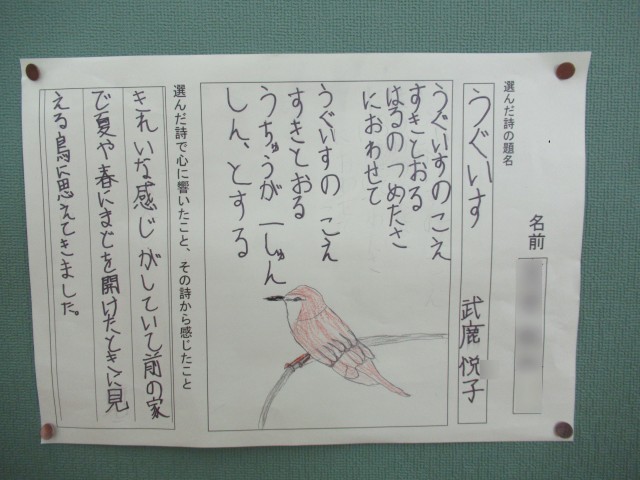 名前
選んだ詩の題名
うぐいす
武鹿悦子
うぐいすの こえ
すきとおる
はるの つめたさ
におわせて
うぐいすの こえ
すきとおる
うちゅうが 一しゅん
しん、とする
選んだ詩で心に響いたこと、その詩から感じたこと
きれいな感じがしていて前の家
で夏や春にまどを開けたときに見
える鳥に思えてきました。